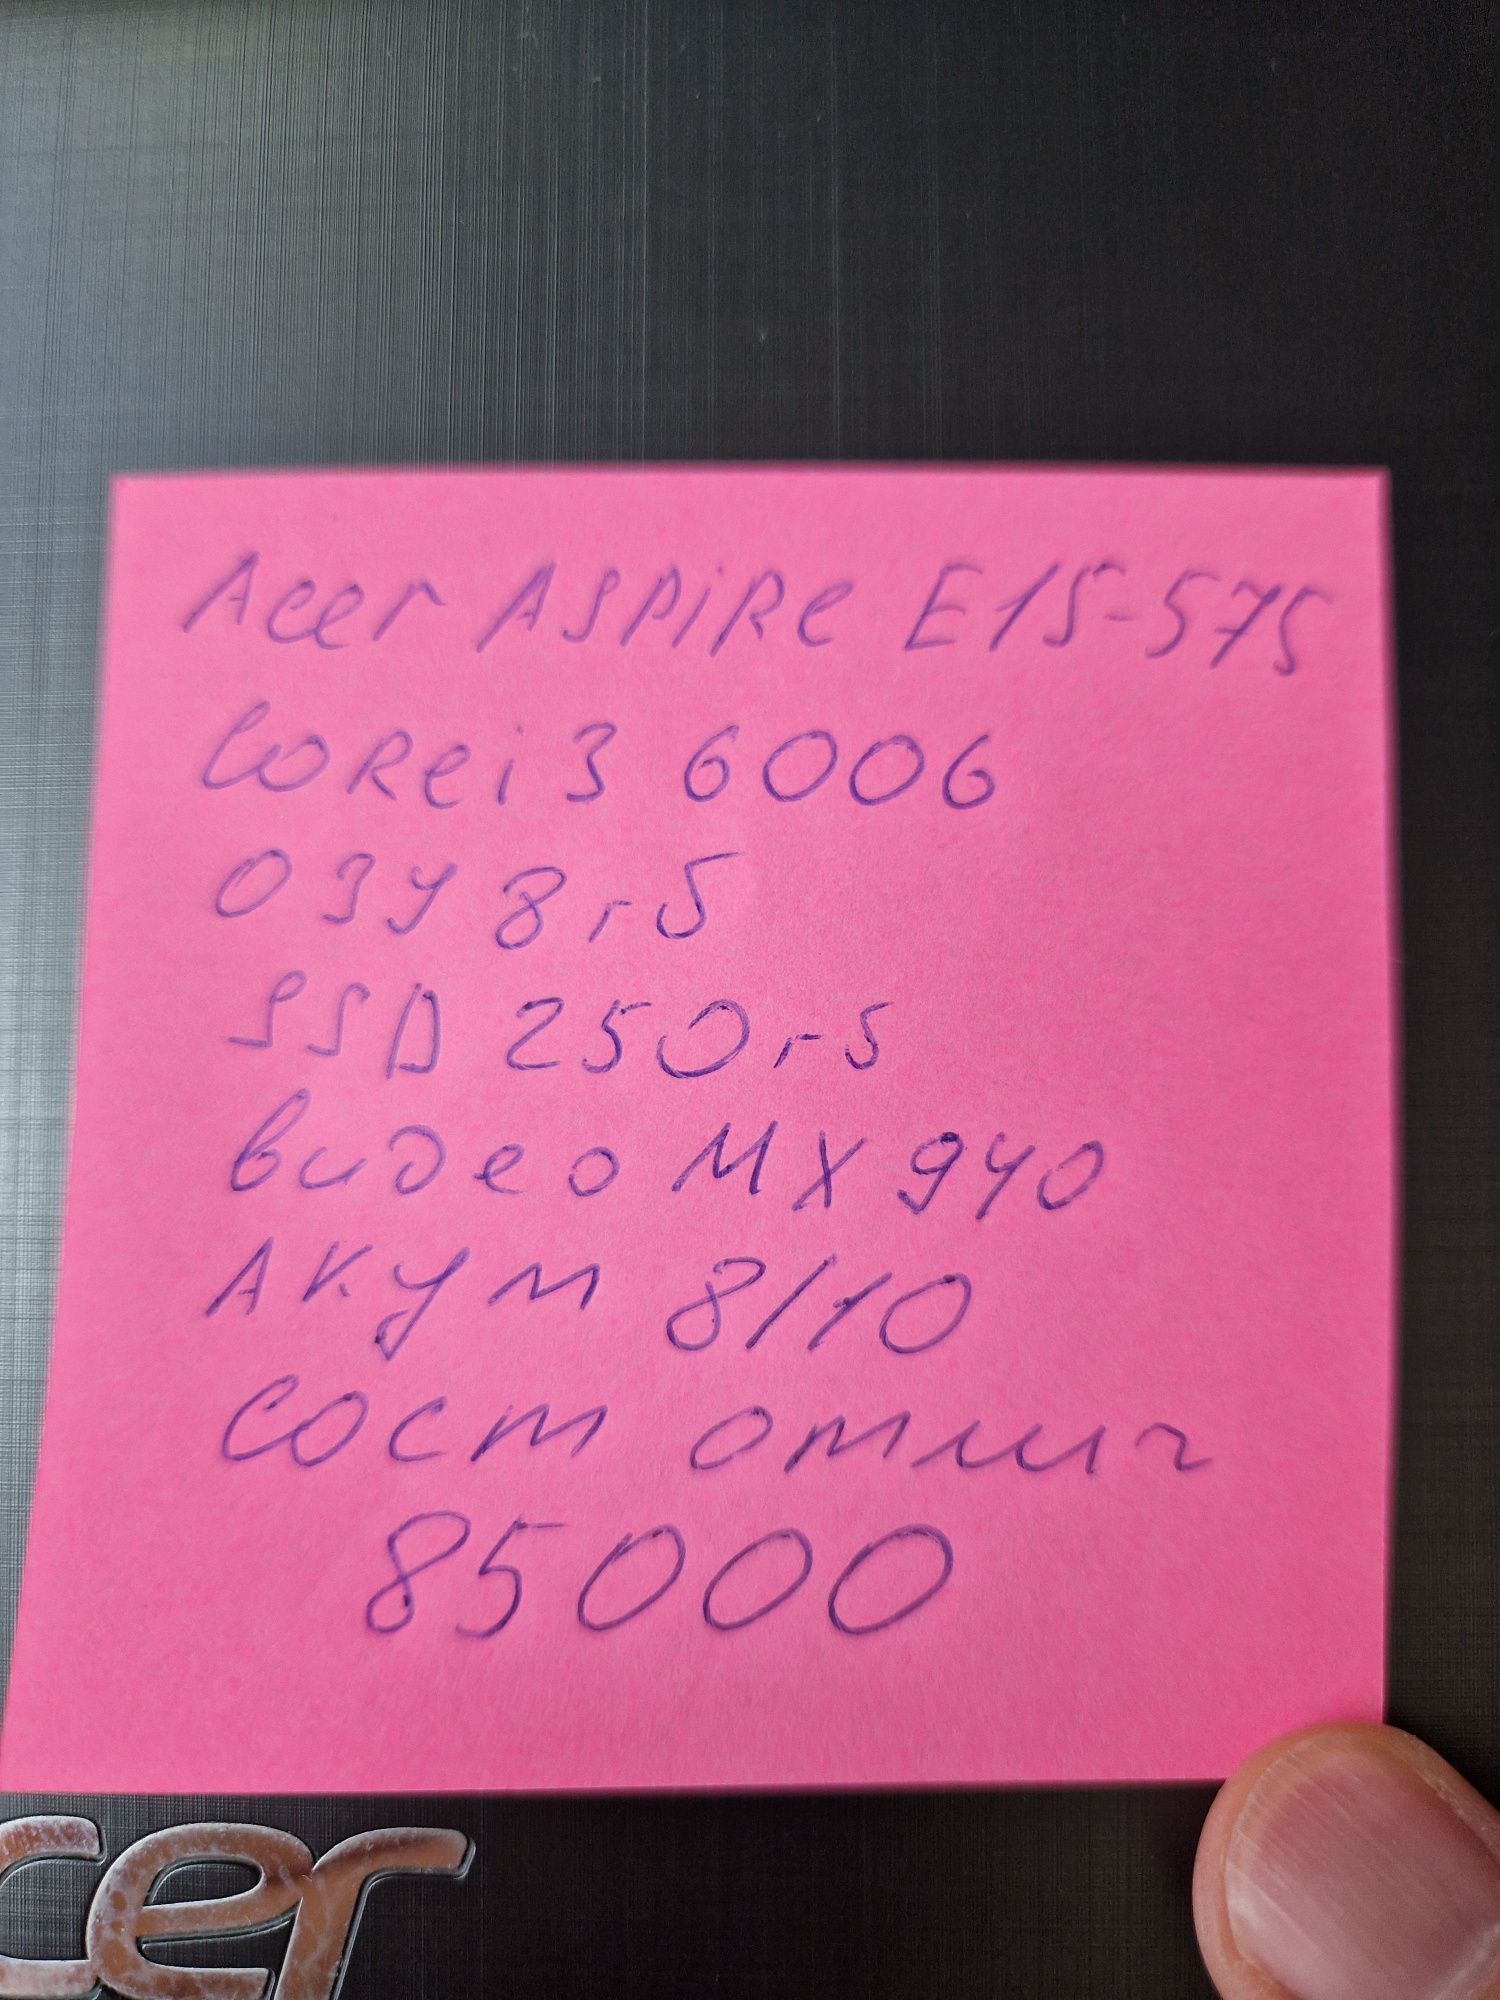 Acer ASPiRe E15-575
Corei3 6006
ОЗУ 8гб
SSD 250гб
видео MX 940
Акум 8/10
сост отлич
85000
cer